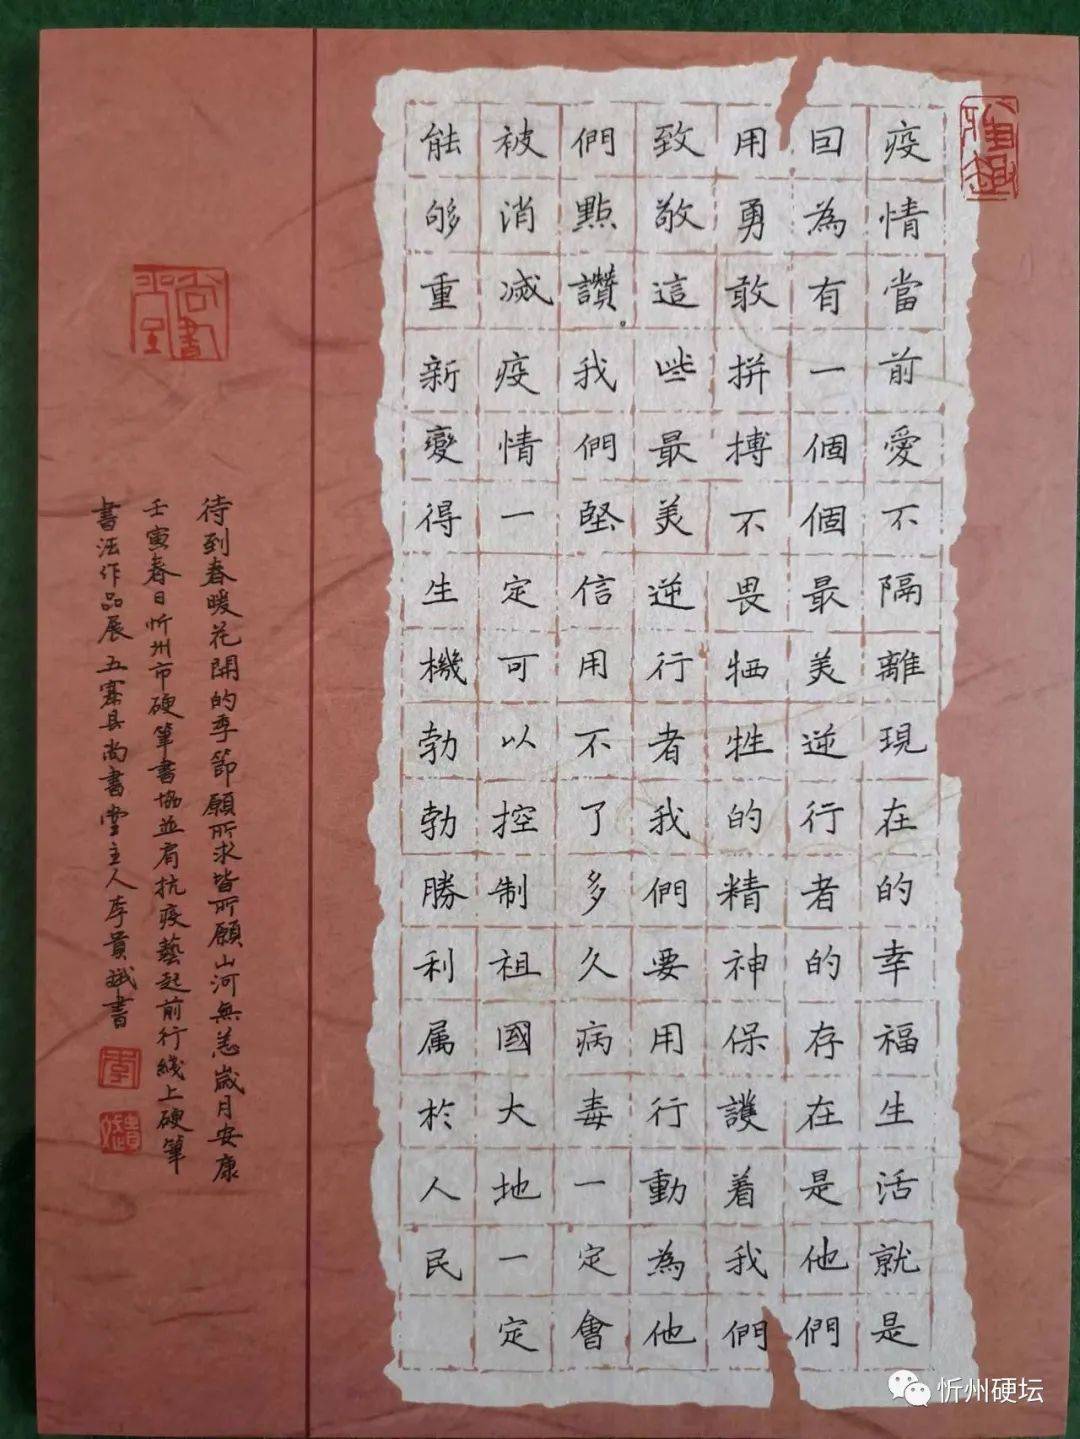 疫情當前愛不隔離現在的幸福生活就是
回為有一個個最美逆行者的存在是他們
用勇敢拼搏不畏牺牲的精神保護着我們
致敬這些最美逆行者我們要用行動為他
們點讚。我們堅信用不了多久病毒一定會
被消滅疫情一定可以控制祖國大地一定
能够重新變得生機勃勃勝利属於人民
待到春暖花開的季節願所求皆所願山河無恙歲月安康
壬寅春日忻州市硬筆書協並肩抗疫藝起前行綫上硬筆
書法作品展五寨县尚書堂主人李貴斌書
尚書堂
雅趣
李
忻州硬坛